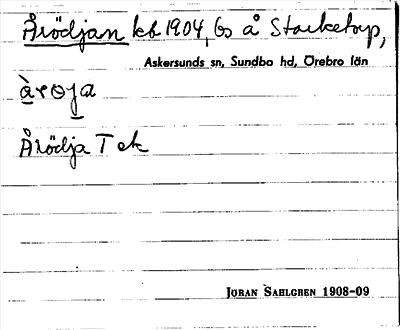 Årödjan kb 1904, Gs å Starketorp,
Askersunds sn, Sundbo hd, Örebro län
àrøja
Årödja T ek
JÖRAN SAHLGREN 1908-09